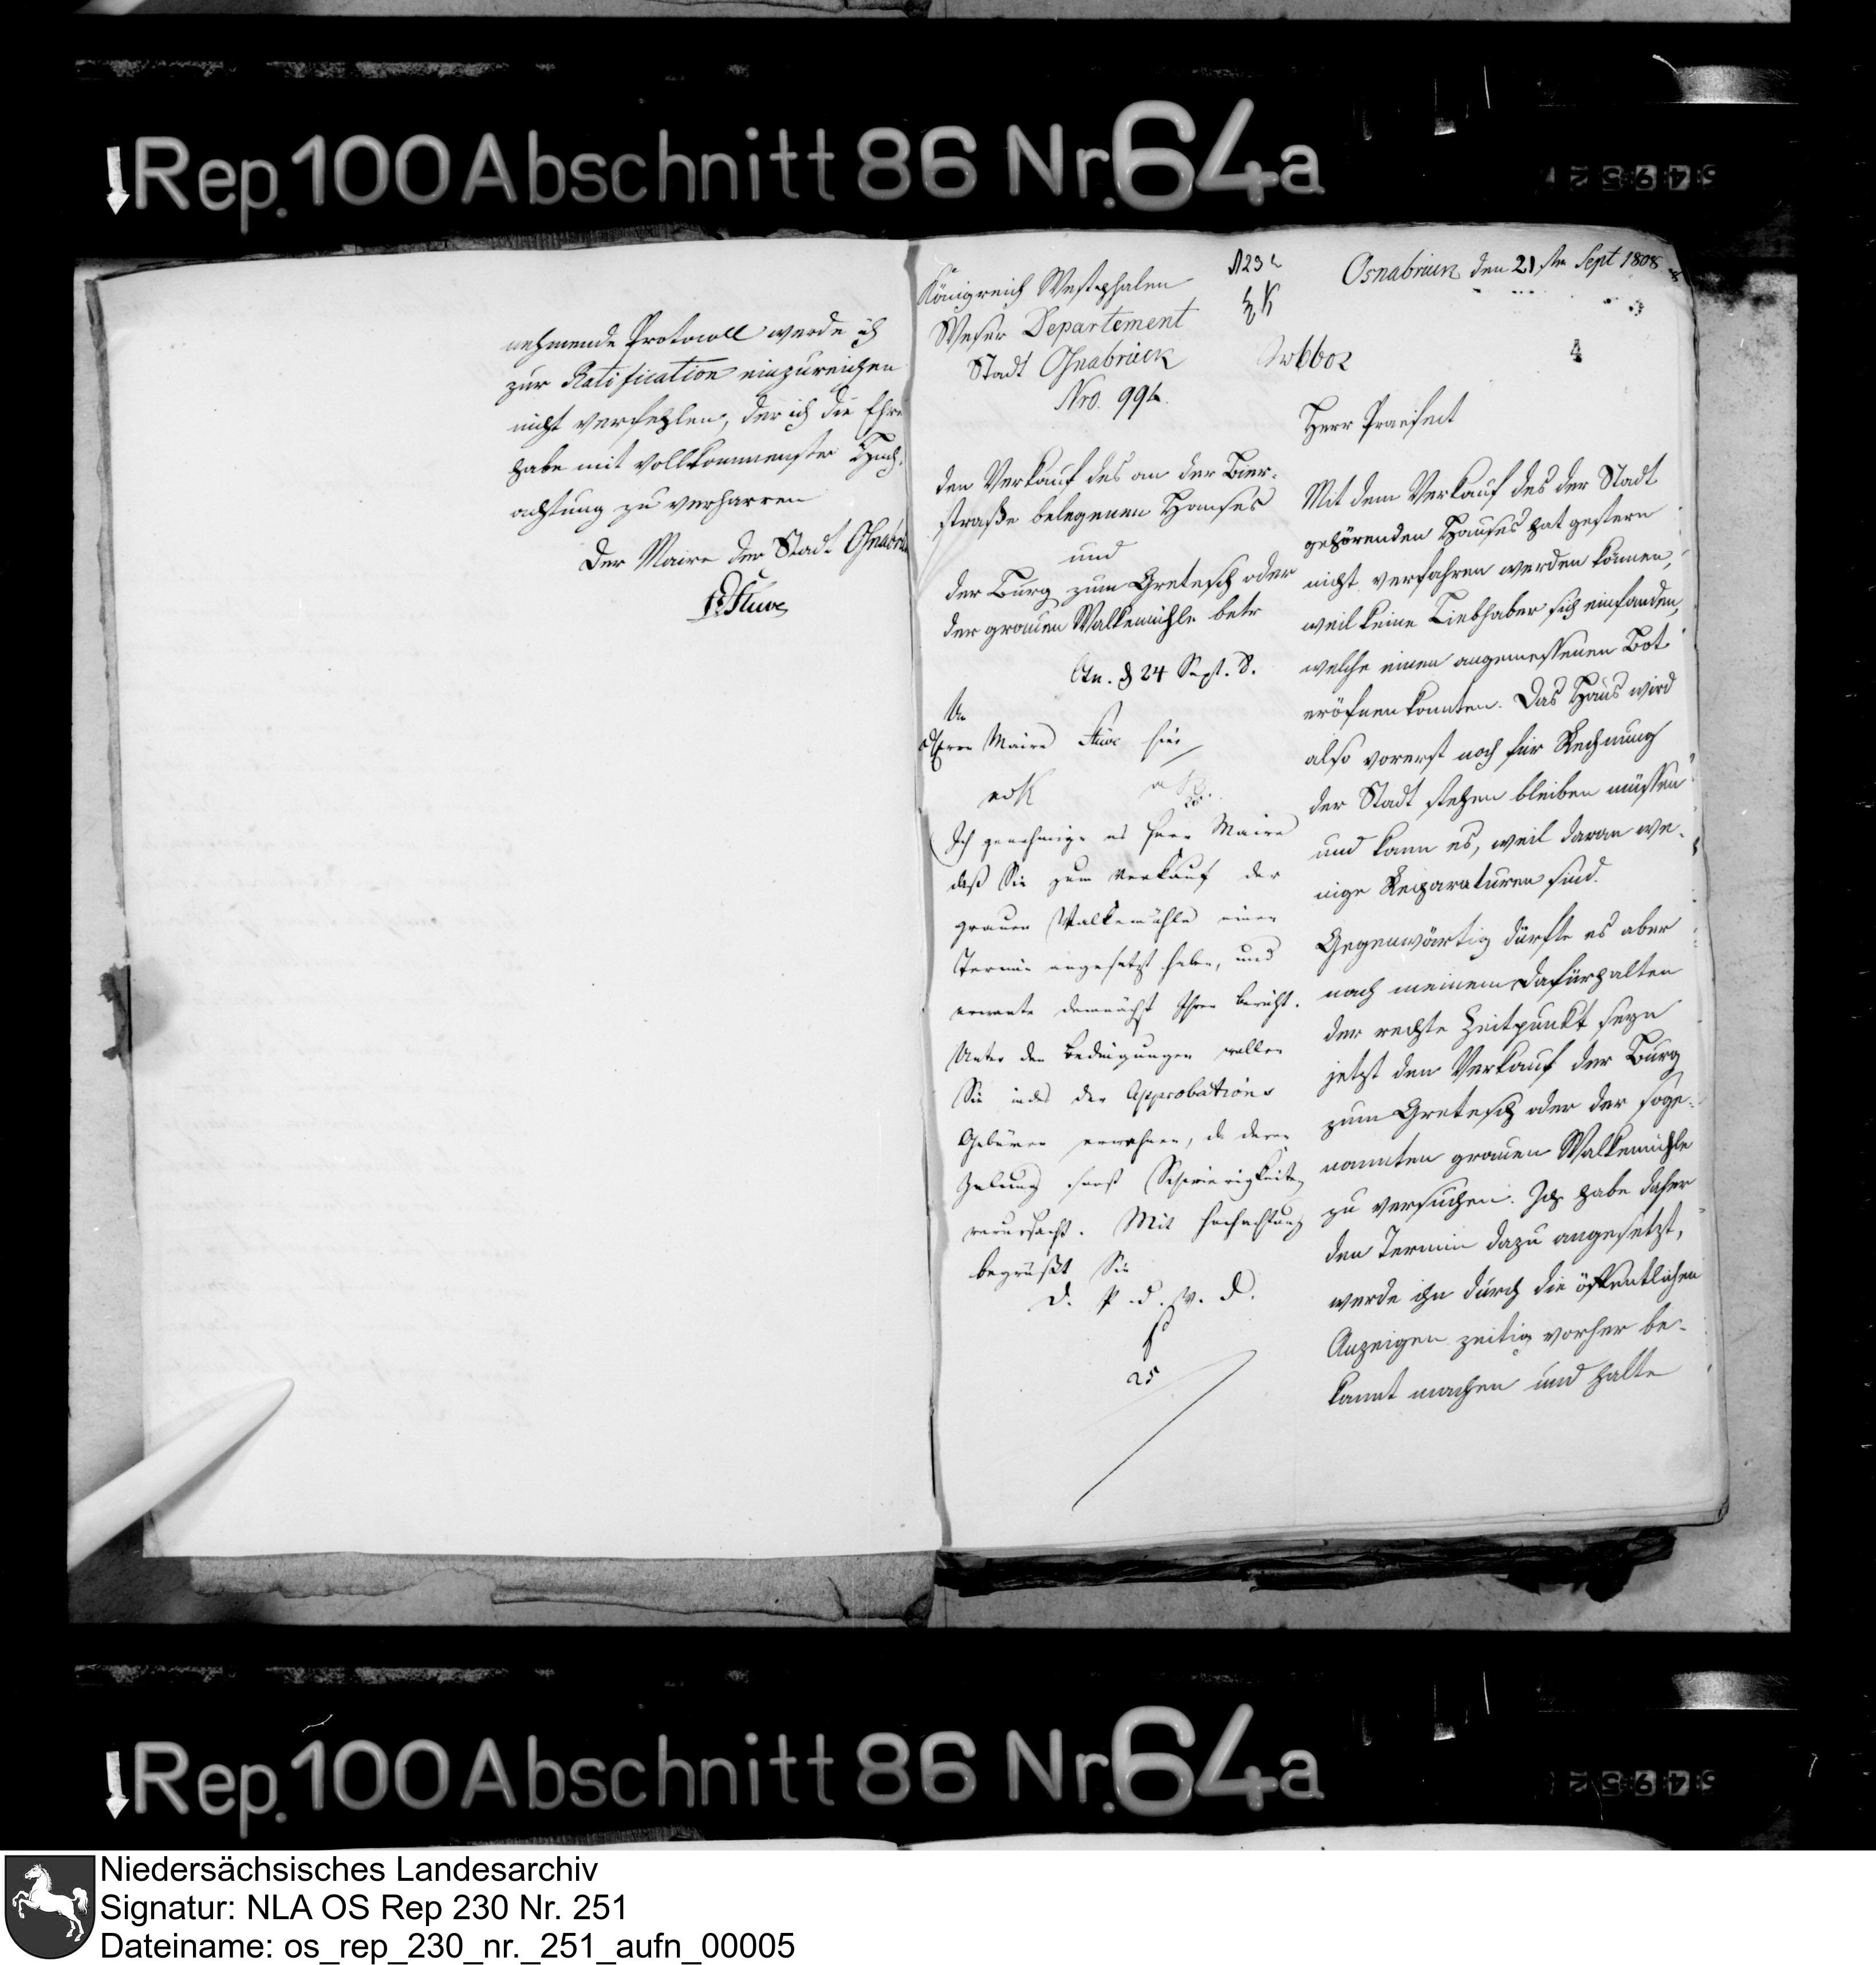 Rep. 100 Abschnitt 86 Nr. 64a
nehmende Protocoll werde ich
zur Ratification einzureichen
nicht verfehlen, der ich die Ehre
habe mit vollkommenster Hoch-
achtung zu verharren
Der Maire der Stadt Osnabrü
Stüve
Königreich Westphalen
Weser Departement
Stadt Osnabrück
Nro. 994.
Osnabrück den 21sten Sept 1808
4
Herr Praefect
den Verkauf des an der Bier-
straße belegenen Hauses
und
der Burg zum Gretesch oder
der grauen Walkemühle betr
24 Sept. 8.
An
Herrn Maire Stüve hier
Ich genehmige es Herr Maire
daß Sie zum Verkauf der
grauen Walkemühle einen
Termin angesetzt haben, und
erwarte demnächst Ihren Bericht.
Unter den Bedingungen wollen
Sie indes der Approbations
Gebüren erwähnen, da deren
Zalung sonst Schwierigkeiten
verursacht. Mit Hochachtung
begrüßt Sie
D. P. d. W. D.
25
Mit dem Verkauf des der Stadt
gehörenden Hauses hat gestern
nicht verfahren werden können,
weil keine Liebhaber sich einfanden,
welche einen angemessenen Bot
eröfnen konnten. Das Haus wird
also vorerst noch für Rechnung
der Stadt stehen bleiben müssen
und kann es, weil daran we-
nige Reparaturen sind.
Gegenwärtig dürfte es aber
nach meinem Dafürhalten
der rechte Zeitpunkt seyn
jetzt den Verkauf der Burg
zum Gretesch oder der soge-
nannten grauen Walkemühle
zu versuchen. Ich habe daher
den Termin dazu angesetzt,
werde ihn durch die öffentlichen
Anzeigen zeitig vorher be-
kannt machen und halte
Rep. 100 Abschnitt 86 Nr. 64a
Niedersächsisches Landesarchiv
Signatur: NLA OS Rep 230 Nr. 251
Dateiname: os_rep_230_nr._251_aufn_00005